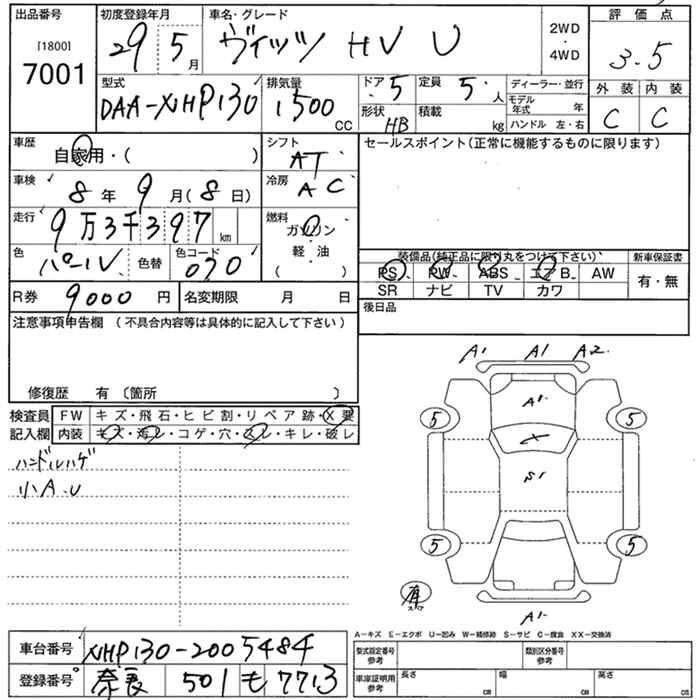 出品番号 初度登録年月 車名・グレード 2WD 評価点
[1800] 29 5月 ヴィッツ HV U ・ 3.5
7001 4WD
型式 排気量 ドア 5 定員 5人 ディーラー・並行 外装 内装
DAA-NHP130 1500CC 形状 HB 積載 kg モデル年式 年 C C
ハンドル 左・右
車歴 自家用・( ) シフト AT セールスポイント(正常に機能するものに限ります)
車検 8年 9月(8日) 冷房 AC
走行 9万3千397km 燃料 ガソリン
色 パール 色替 色コード 070 軽・油 装備品(純正品に限り丸をつけて下さい) 新車保証書
( ) PS PW ABS エアB AW 有・無
R券 9000円 名変期限 月 日 SR ナビ TV カワ
注意事項申告欄 (不具合内容等は具体的に記入して下さい) 後日品
修復歴 有 〔箇所 〕
検査員 FW キズ・飛石・ヒビ割・リペア跡・X要
記入欄 内装 キズ・汚レ・コゲ・穴・スレ・キレ・破レ
ハンドルハゲ
小A.U
A1 A1 A2
A1
5 5
X
S1
5 5
有 スペア
A1
A-キズ E-エクボ U-凹み W-補修跡 S-サビ C-腐食 XX-交換済
車台番号 NHP130-2005484 型式指定番号 参考 類別区分番号 参考
登録番号 奈良 501 も 7713 車庫証明用 参考 長さ cm 幅 cm 高さ cm